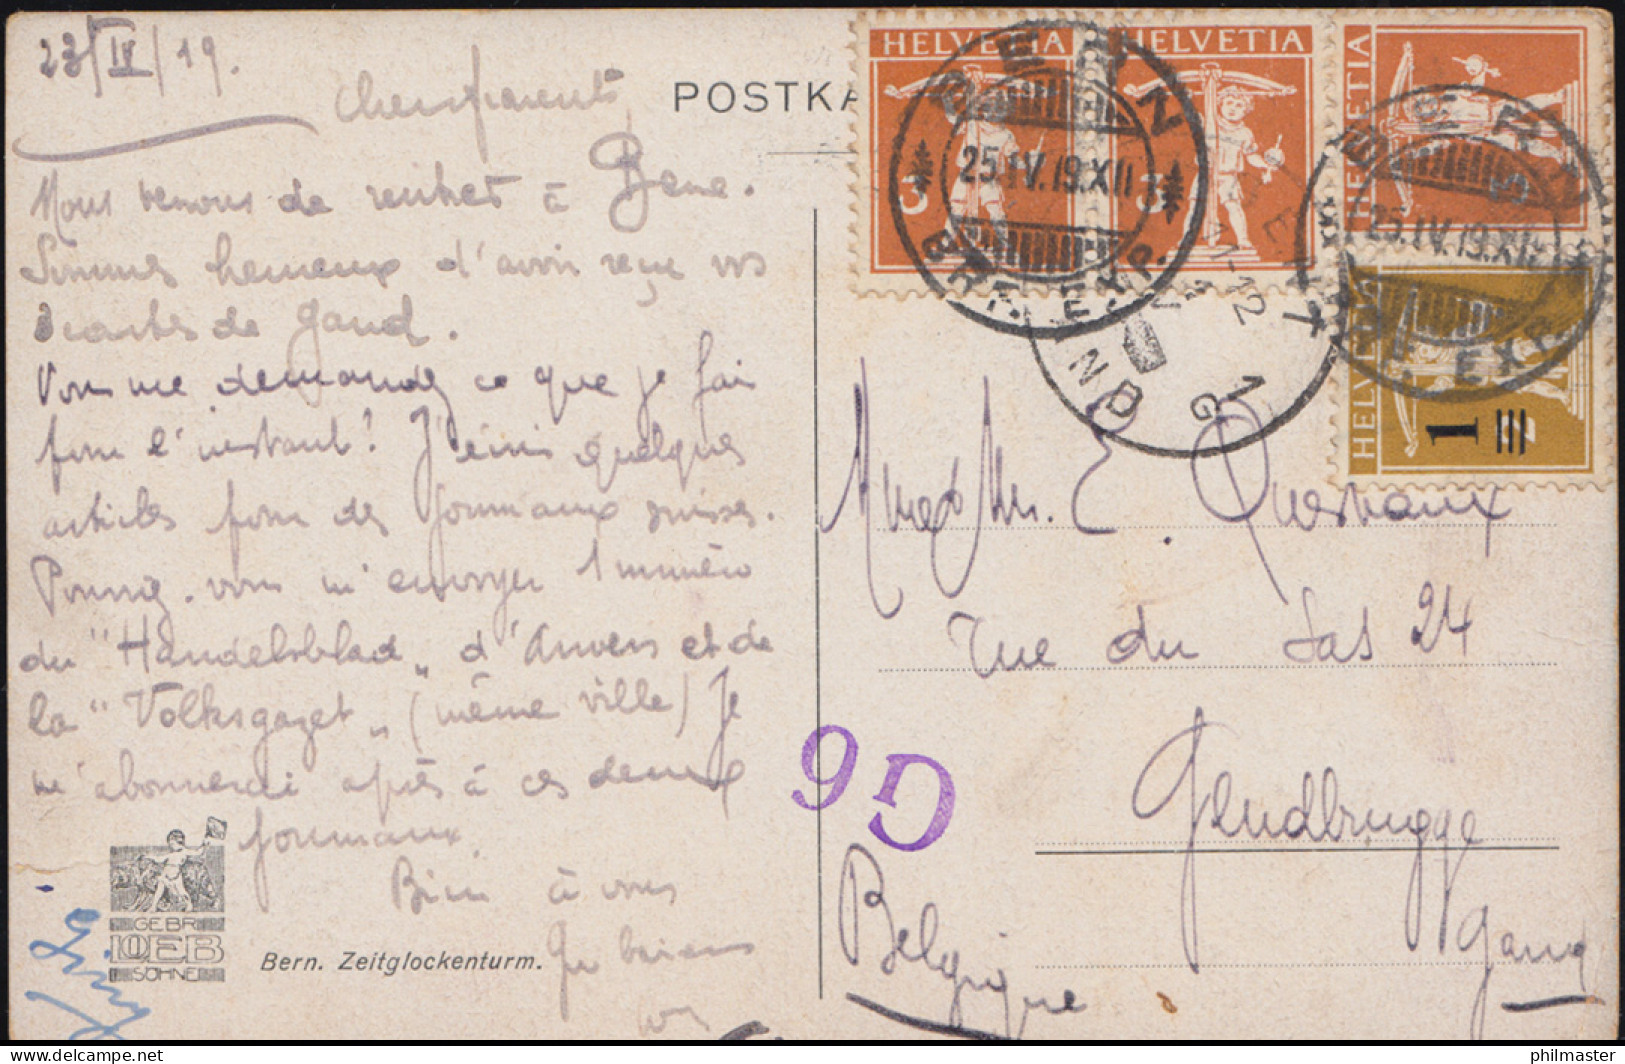 23/IV/19.
Chers parents,
POSTKA
Nous venons de rentrer à Berne.
Sommes heureux d'avoir reçu vos
cartes de Gand.
Vous me demandez ce que je fais
pour l'instant? J'écris quelques
articles pour des journaux suisses.
Pourriez-vous m'envoyer 1 numéro
du "Handelsblad" d'Anvers et de
la "Volksgazet" (même ville) Je
m'abonnerai après à ces deux
journaux.
Bien à vous
GEBR
LOEB
SÖHNE
Bern. Zeitglockenturm.
HELVETIA
3
HELVETIA
3
HELVETIA
HELVETIA
1
BERN
25.IV.19.XII
BRF. EXP.
BERN
25.IV.19.XII
BRF. EXP.
GEN
11-12
1 G
GENT
M. E.
Rue du Sas 24
Gendbrugge
Gand
Belgique
G6